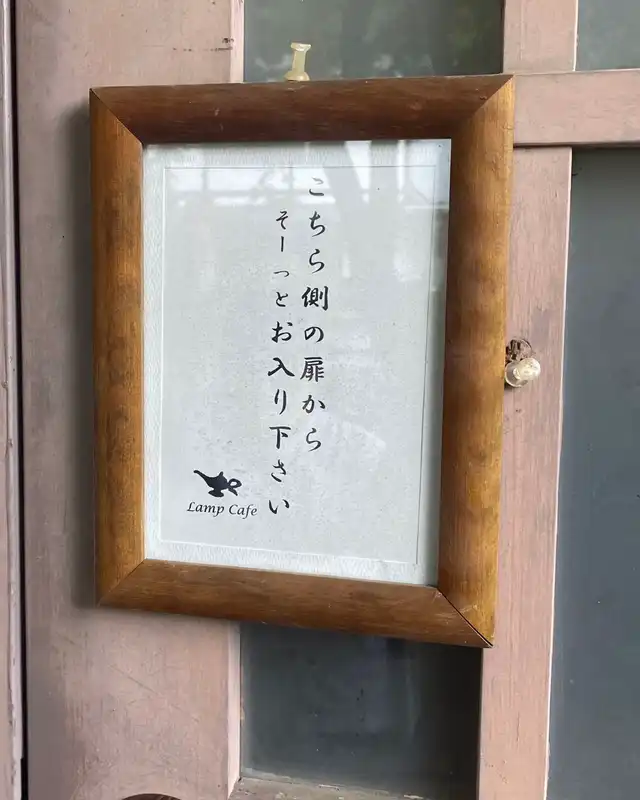 こちら側の扉から
そーっとお入り下さい
Lamp Cafe